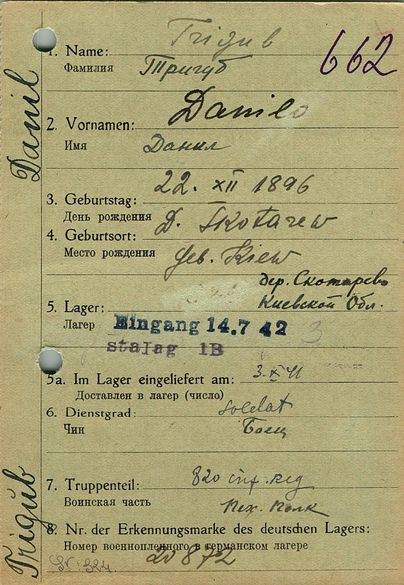 Trigub
1. Name:
Фамилия Тригуб
662
Danilo
2. Vornamen:
Имя Данил
22. XII 1896
3. Geburtstag:
День рождения
D. Skotarew
4. Geburtsort:
Место рождения
Geb. Kiew
дер. Скотарево
Киевской Обл.
5. Lager:
Лагерь
Eingang 14.7 42
stalag 1B
5a. Im Lager eingeliefert am: 3. XI 41
Доставлен в лагерь (число)
6. Dienstgrad: soldat
Чин Боец
7. Truppenteil: 820 inf. reg
Воинская часть Пех. полк
8. Nr. der Erkennungsmarke des deutschen Lagers:
Номер военнопленного в германском лагере
20872
Danil
Trigub